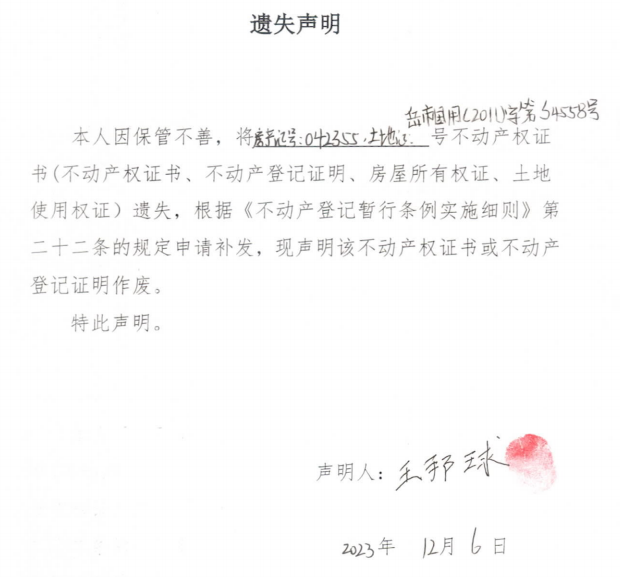 遗失声明
岳市国用(2011)字第S4558号
本人因保管不善，将房产证号:042355.土地证: 号不动产权证
书(不动产权证书、不动产登记证明、房屋所有权证、土地
使用权证）遗失，根据《不动产登记暂行条例实施细则》第
二十二条的规定申请补发，现声明该不动产权证书或不动产
登记证明作废。
特此声明。
声明人：王邦球
2023年 12月 6日